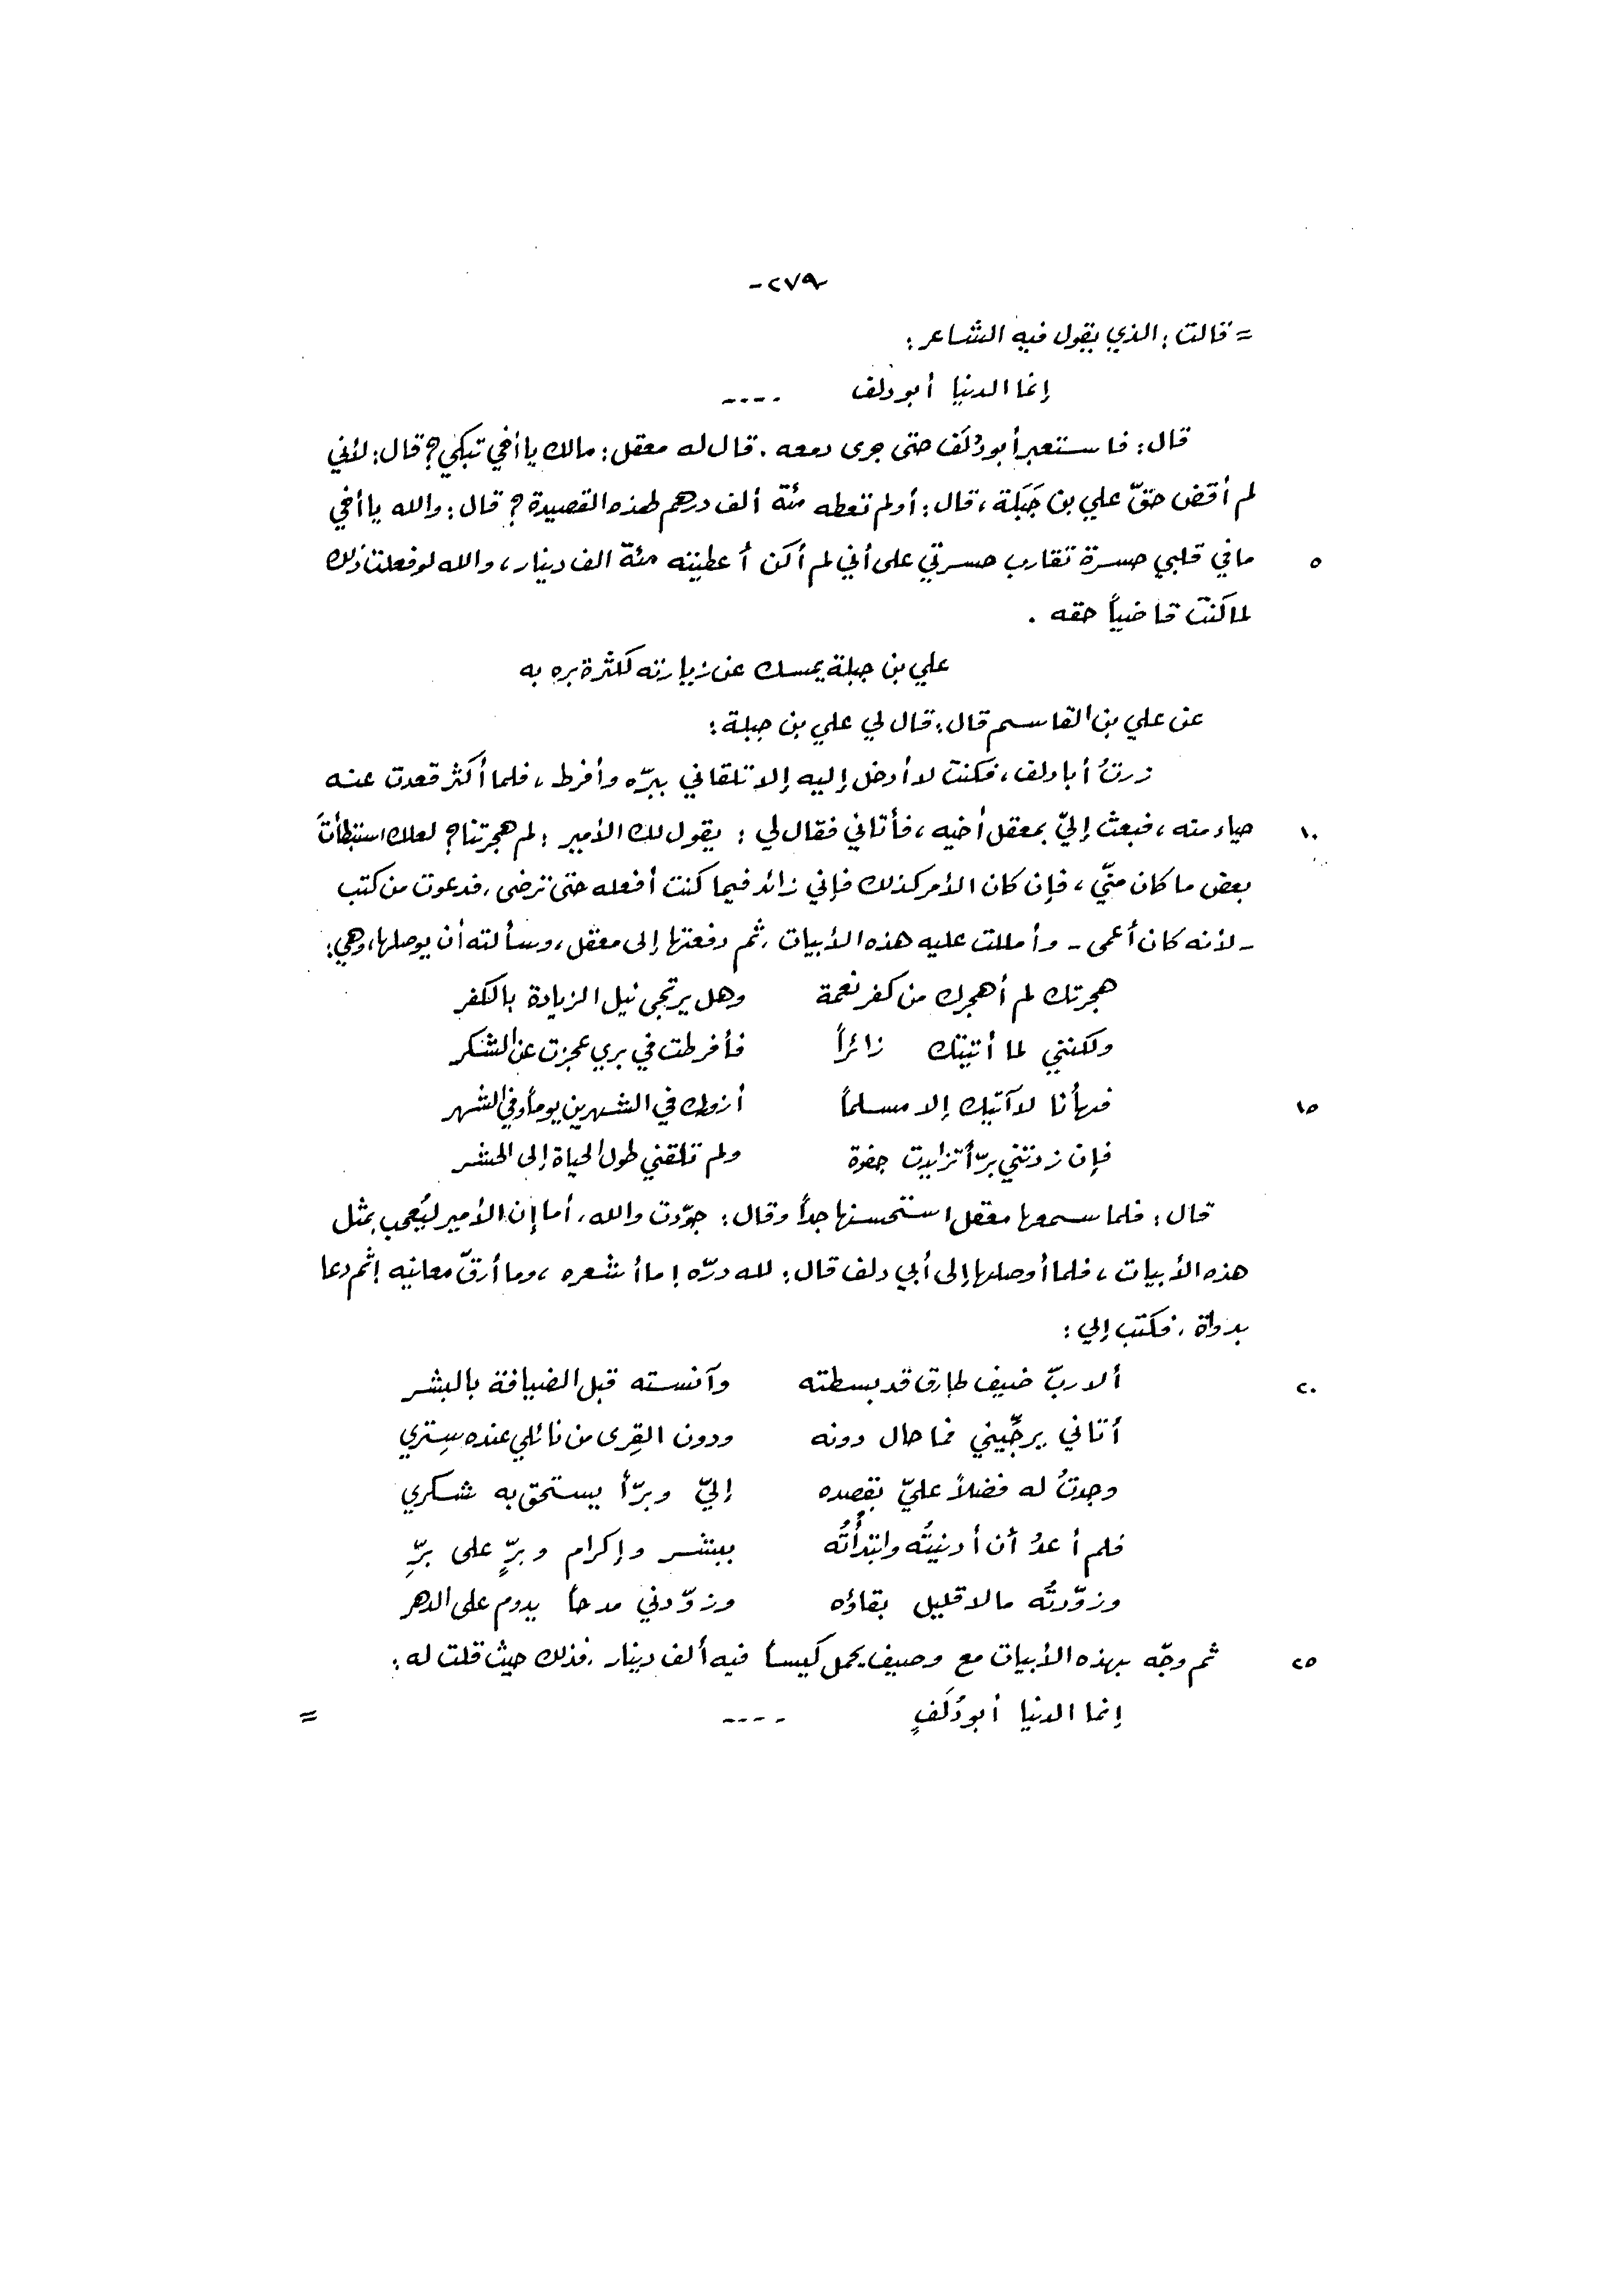 -٢٧٩-
= قالت: الذي يقول فيه الشاعر:
إنما الدنيا أبو دلف ----
قال: فاستعبر أبو دُلَف حتى جرى دمعه. قال له معقل: مالك يا أخي تبكي؟ قال: لأني
لم أقض حقّ علي بن جَبَلة، قال: أولم تعطه مئة ألف درهم لهذه القصيدة؟ قال: والله يا أخي
٥ ما في قلبي حسرة تقارب حسرتي على أني لم أكن أعطيته مئة الف دينار، والله لو فعلت ذلك
لما كنت قاضياً حقه.
علي بن جبلة يمسك عن زيارته لكثرة بره به
عن علي بن القاسم قال: قال لي علي بن جبلة:
زرتُ أبا دلف، فكنت لا أدخل إليه إلا تلقاني ببرّه وأفرط، فلما أكثر قعدت عنه
١٠ حياء منه، فبعث إليّ بمعقل أخيه، فأتاني فقال لي: يقول لك الأمير: لم هجرتنا؟ لعلك استبطأت
بعض ما كان منّي، فإن كان الأمر كذلك فإني زائد فيما كنت أفعله حتى ترضى، فدعوت من كتب
- لأنه كان أعمى - وأمللت عليه هذه الأبيات، ثم دفعتها إلى معقل، وسألته أن يوصلها، وهي:
هجرتك لم أهجرك من كفر نعمة وهل يرتجى نيل الزيادة بالكفر
ولكنني لما أتيتك زائراً فأفرطت في بري عجزت عن الشكر
١٥ فهأنا لا آتيك إلا مسلماً أزورك في الشهرين يوماً وفي الشهر
فإن زدتني برّاً تزايدت جفوة ولم تلقني طول الحياة إلى الحشر
قال: فلما سمعها معقل استحسنها جداً وقال: جوّدت والله، أما إن الأمير ليُعجب بمثل
هذه الأبيات، فلما أوصلها إلى أبي دلف قال: لله درّه! ما أشعره، وما أرقّ معانيه! ثم دعا
بدواة، فكتب إلي:
٢٠ ألا ربّ ضيف طارق قد بسطته وآنسته قبل الضيافة بالبشر
أتاني يرجّيني فما حال دونه ودون القِرى من نائلي عنده سِتري
وجدتُ له فضلاً عليّ بقصده إليّ وبرّاً يستحق به شكري
فلم أعدُ أن أدنيتُه وابتدأتُه ببشر وإكرام وبرٍّ على برِّ
وزوّدتُه مالا قليل بقاؤه وزوّدني مدحاً يدوم على الدهر
٢٥ ثم وجّه بهذه الأبيات مع وصيف يحمل كيساً فيه ألف دينار، فذلك حيث قلت له:
إنما الدنيا أبو دُلَفٍ ----
=